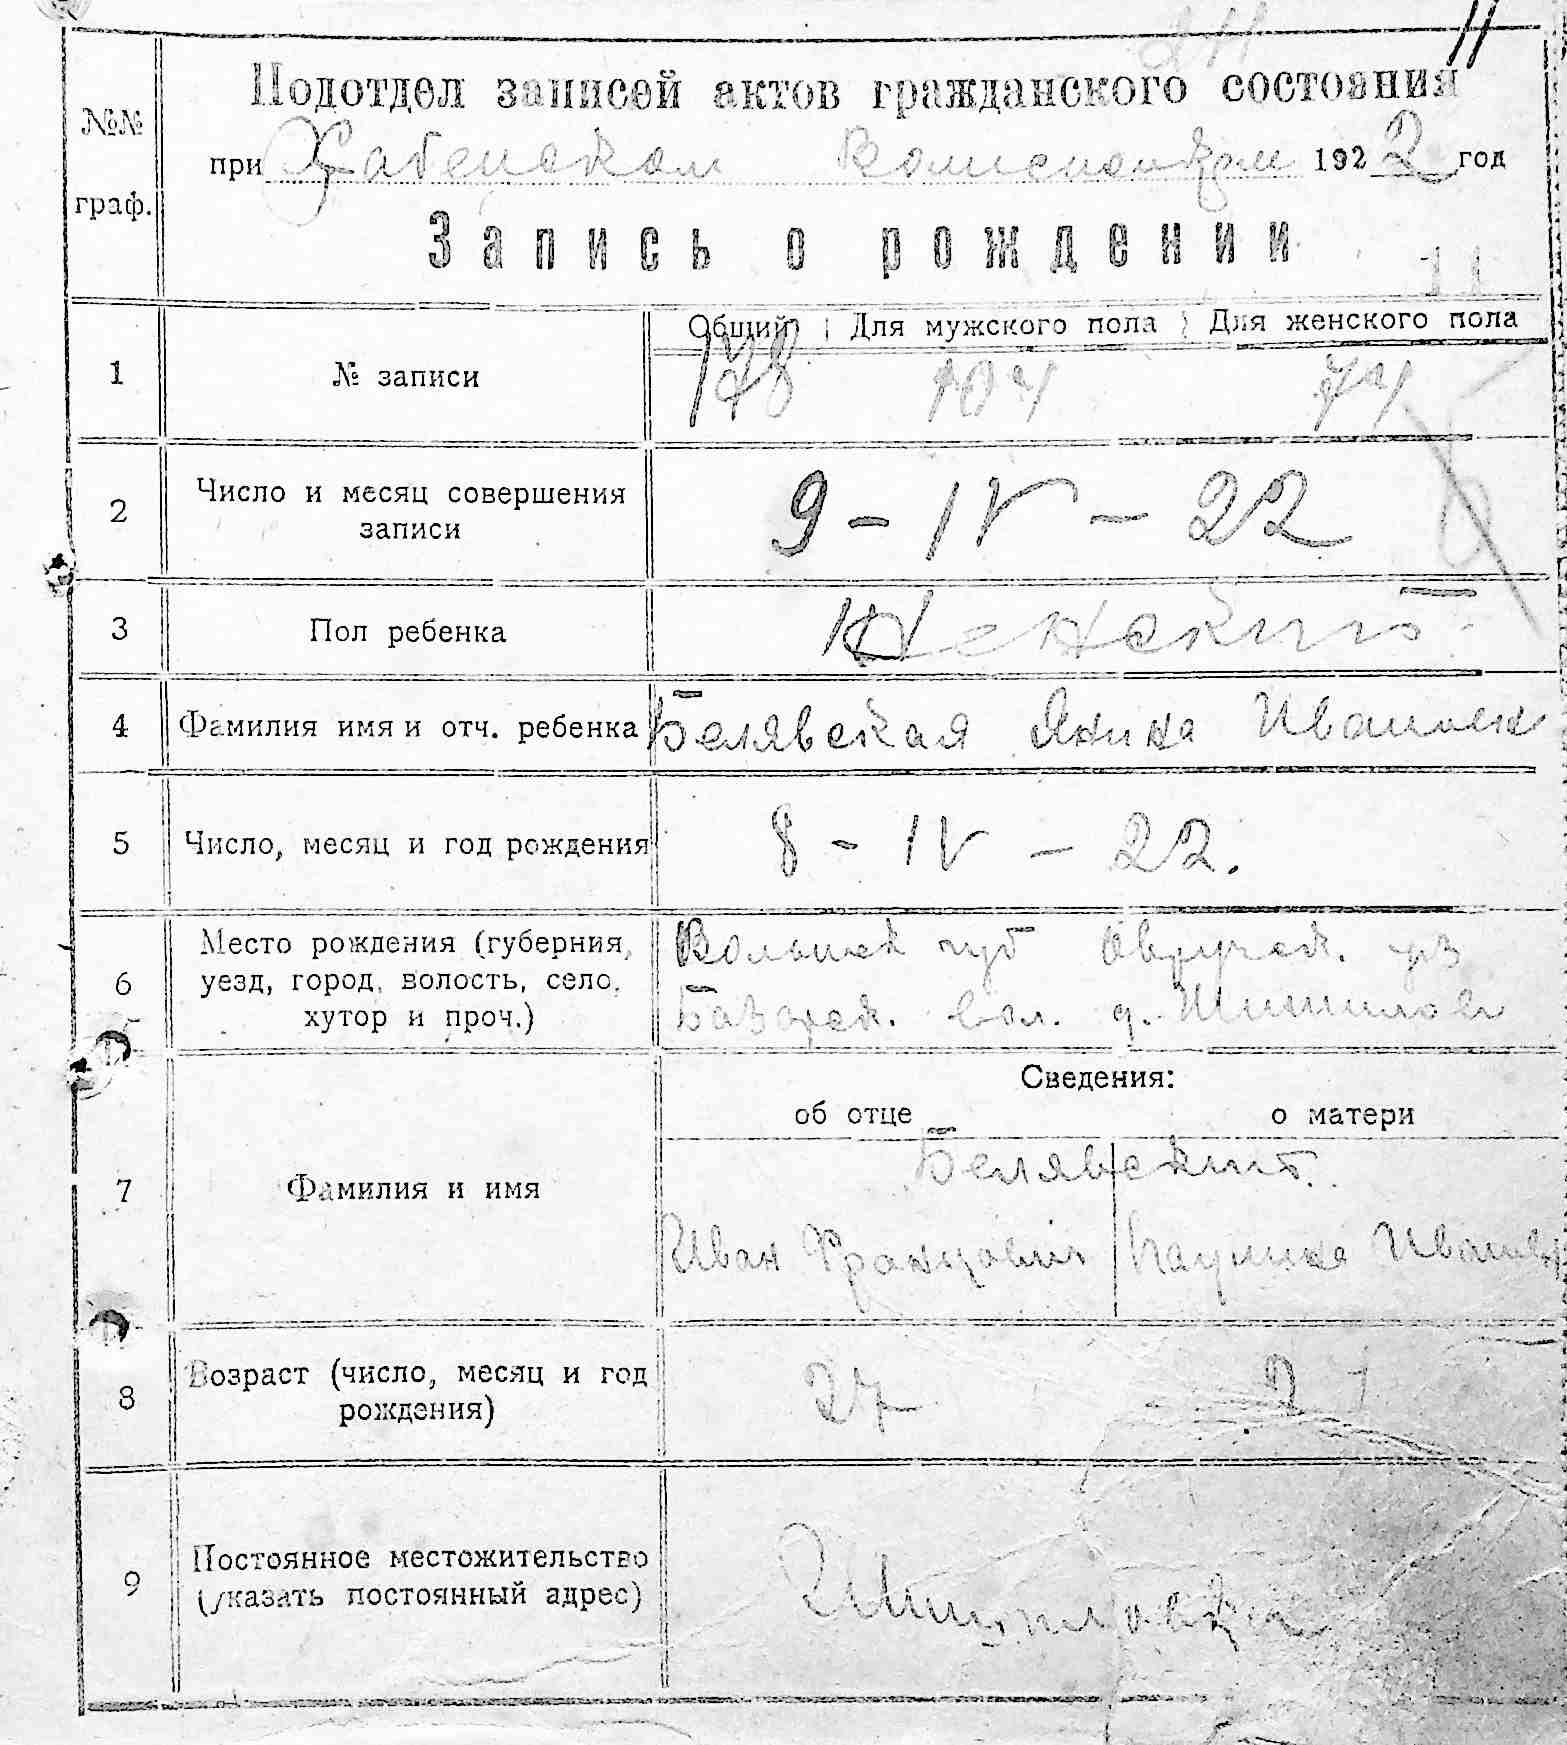 11
Подотдел записей актов гражданского состояния
№№ граф.
при Хабенском Волисполкоме 1922 год
Запись о рождении
11
Общий Для мужского пола Для женского пола
1 № записи 178 104 74
2 Число и месяц совершения записи 9 - IV - 22
3 Пол ребенка Женский
4 Фамилия имя и отч. ребенка Белявская Янина Ивановн
5 Число, месяц и год рождения 8 - IV - 22.
6 Место рождения (губерния, Волынск губ Овручск. уз
уезд, город, волость, село, Базарск. вол. д.
хутор и проч.)
Сведения:
об отце о матери
Белявский
7 Фамилия и имя
Иван Францович Паулина Ивановн
8 Возраст (число, месяц и год рождения) 27 21
9 Постоянное местожительство
(указать постоянный адрес)